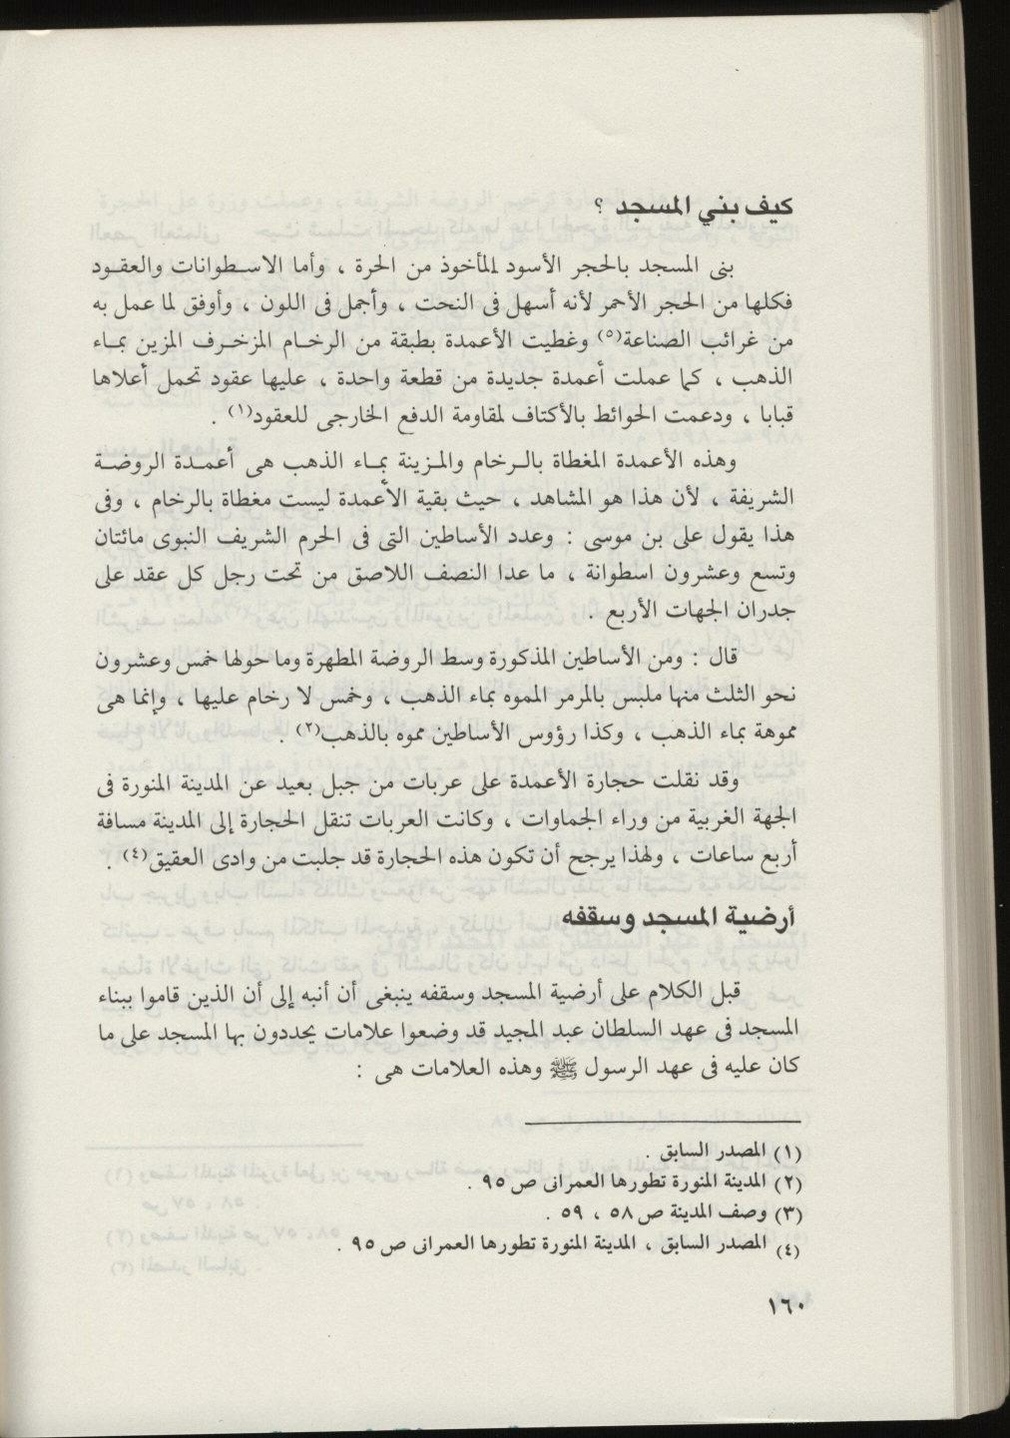 كيف بني المسجد ؟
بنى المسجد بالحجر الأسود المأخوذ من الحرة ، وأما الاسطوانات والعقود
فكلها من الحجر الأحمر لأنه أسهل فى النحت ، وأجمل فى اللون ، وأوفق لما عمل به
من غرائب الصناعة(٥) وغطيت الأعمدة بطبقة من الرخام المزخرف المزين بماء
الذهب ، كما عملت أعمدة جديدة من قطعة واحدة ، عليها عقود تحمل أعلاها
قبابا ، ودعمت الحوائط بالأكتاف لمقاومة الدفع الخارجى للعقود(١) .
وهذه الأعمدة المغطاة بالرخام والمزينة بماء الذهب هى أعمدة الروضة
الشريفة ، لأن هذا هو المشاهد ، حيث بقية الأعمدة ليست مغطاة بالرخام ، وفى
هذا يقول على بن موسى : وعدد الأساطين التى فى الحرم الشريف النبوى مائتان
وتسع وعشرون اسطوانة ، ما عدا النصف اللاصق من تحت رجل كل عقد على
جدران الجهات الأربع .
قال : ومن الأساطين المذكورة وسط الروضة المطهرة وما حولها خمس وعشرون
نحو الثلث منها ملبس بالمرمر المموه بماء الذهب ، وخمس لا رخام عليها ، وإنما هى
مموهة بماء الذهب ، وكذا رؤوس الأساطين مموه بالذهب(٢) .
وقد نقلت حجارة الأعمدة على عربات من جبل بعيد عن المدينة المنورة فى
الجهة الغربية من وراء الجماوات ، وكانت العربات تنقل الحجارة إلى المدينة مسافة
أربع ساعات ، ولهذا يرجح أن تكون هذه الحجارة قد جلبت من وادى العقيق(٤) .
أرضية المسجد وسقفه
قبل الكلام على أرضية المسجد وسقفه ينبغى أن أنبه إلى أن الذين قاموا ببناء
المسجد فى عهد السلطان عبد المجيد قد وضعوا علامات يحددون بها المسجد على ما
كان عليه فى عهد الرسول ﷺ وهذه العلامات هى :
(١) المصدر السابق .
(٢) المدينة المنورة تطورها العمرانى ص ٩٥ .
(٣) وصف المدينة ص ٥٨ ، ٥٩ .
(٤) المصدر السابق ، المدينة المنورة تطورها العمرانى ص ٩٥ .
١٦٠